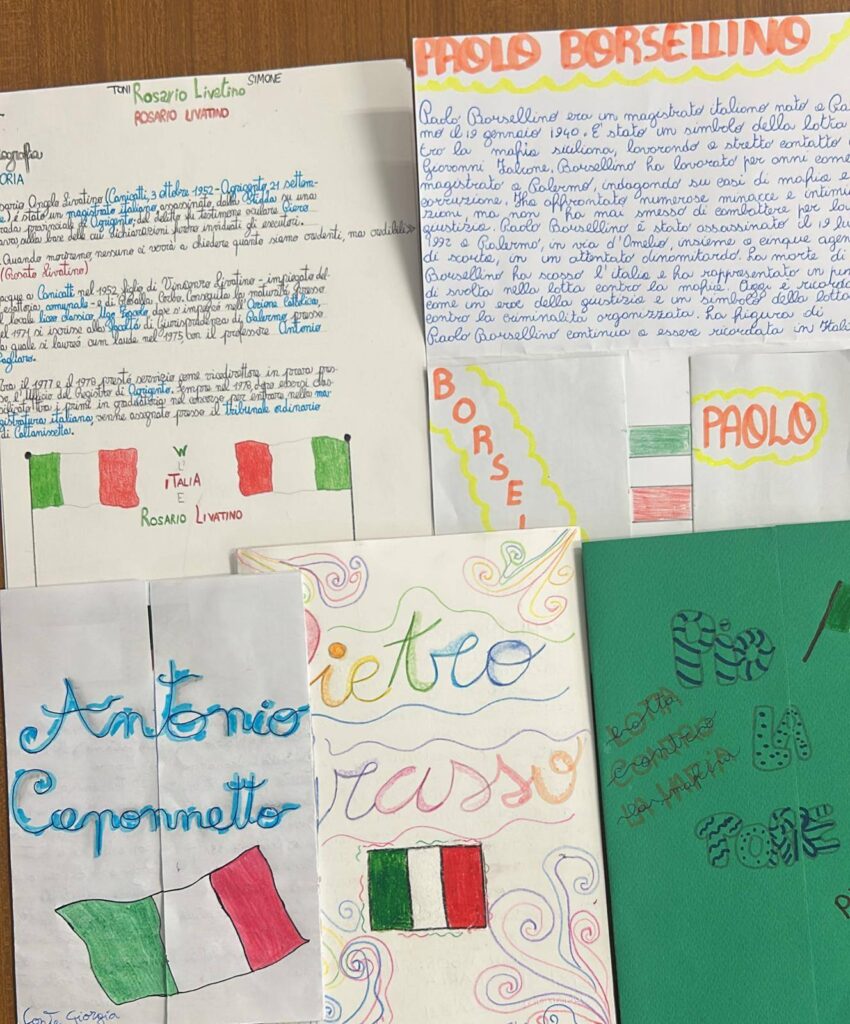 TONI Rosario Livatino SIMONE
ROSARIO LIVATINO
ografia
ORIA
sario Angelo Livatino (Canicattì, 3 ottobre 1952 - Agrigento, 21 settem-
) è stato un magistrato italiano assassinato dalla Stidda su una
rada provinciale di Agrigento, del delitto fu testimone oculare Piero
ava sulla base delle cui dichiarazioni furono individuati gli esecutori.
Quando moriremo, nessuno ci verrà a chiedere quanto siamo credenti, ma credibili»
(Rosato Livatino)
acque a Canicattì nel 1952 figlio di Vincenzo Livatino - impiegato del-
l'esattoria comunale - e di Rosalia Corbo. Conseguita la maturità presso
il locale liceo classico Ugo Foscolo dove s'impegnò nell'Azione Cattolica,
nel 1971 si iscrisse alla Facoltà di Giurisprudenza di Palermo presso
la quale si laureò cum laude nel 1975 con il professore Antonio
Pagliaro.
Tra il 1977 e il 1978 prestò servizio come vicedirettore in prova pres-
so l'Ufficio del Registro di Agrigento. Sempre nel 1978, dopo essersi clas-
sificato tra i primi in graduatoria nel concorso per entrare nella ma-
gistratura italiana, venne assegnato presso il tribunale ordinario
di Caltanissetta.
W
L'
iTALIA
E
ROSARIO LIVATINO
PAOLO BORSELLINO
Paolo Borsellino era un magistrato italiano nato a Pa
mo il 19 gennaio 1940. È stato un simbolo della lotta
tro la mafia siciliana, lavorando a stretto contatto
Giovanni Falcone. Borsellino ha lavorato per anni come
magistrato a Palermo, indagando su casi di mafia e
corruzione. Ha affrontato numerose minacce e intimi
zioni, ma non ha mai smesso di combattere per la
giustizia. Paolo Borsellino è stato assassinato il 19 lu
1992 a Palermo, in via d'Amelio, insieme a cinque agen
di scorta, in un attentato dinamitardo. La morte di
Borsellino ha scosso l'Italia e ha rappresentato un pun
di svolta nella lotta contro la mafia. Oggi è ricorda
come un eroe della giustizia e un simbolo della lotta
contro la criminalità organizzata. La figura di
Paolo Borsellino continua a essere ricordata in Itali
BORSEL
PAOLO
Antonio
Caponnetto
Conte Giorgia
Pietro
rasso
Pio
LOTTA
CONTRO
LA MAFIA
LA
TORRE